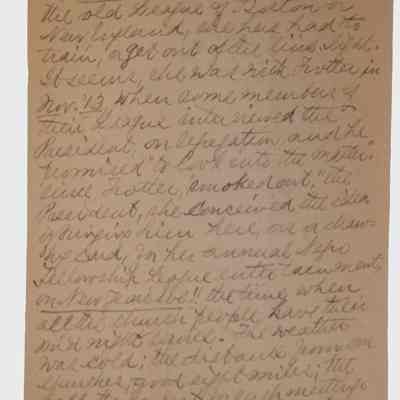 the old League of Boston or
New England, she has had to
train, or get out of the lime light.
It seems, she was with Trotter in
Nov. '13, when some members of
their League interviewed the
President, on segregation, and he
promised "to look into the matter".
Since Trotter, "smoked out," the
President, she conceived the idea
of bringing him here, as a draw-
ing card, for her annual Negro
Fellowship League entertainment,
on New Years eve!! the time when
all the church people have their
watch night services. The weather
was cold; the distance from
churches, good eight miles; the